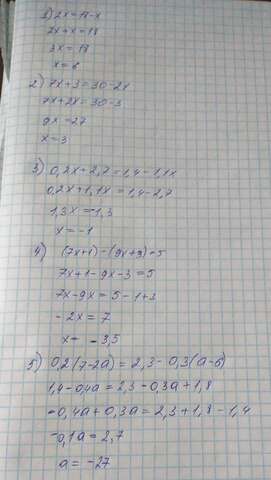 1) 2x = 18-x
2x+x=18
3x=18
x=6
2) 7x+3=30-2x
7x+2x=30-3
9x=27
x=3
3) 0,2x+2,7=1,4-1,1x
0,2x+1,1x=1,4-2,7
1,3x=-1,3
x=-1
4) (7x+1)-(9x+3)=5
7x+1-9x-3=5
7x-9x=5-1+3
-2x=7
x=-3,5
5) 0,2(7-2a)=2,3-0,3(a-6)
1,4-0,4a=2,3-0,3a+1,8
-0,4a+0,3a=2,3+1,8-1,4
-0,1a=2,7
a=-27